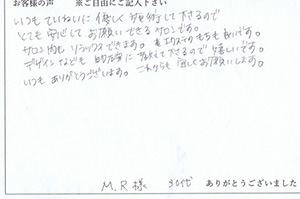 お客様の声　※ご自由にご記入下さい
いつもていねいに優しく対応して下さるので
とても安心してお願いできるサロンです。
サロン内もリラックスできます。まつエクステのもちも良いです。
デザインなども的確に 下さるので嬉しいです。
いつもありがとうございます。これからも宜しくお願いします。
M.R様　30代　ありがとうございました